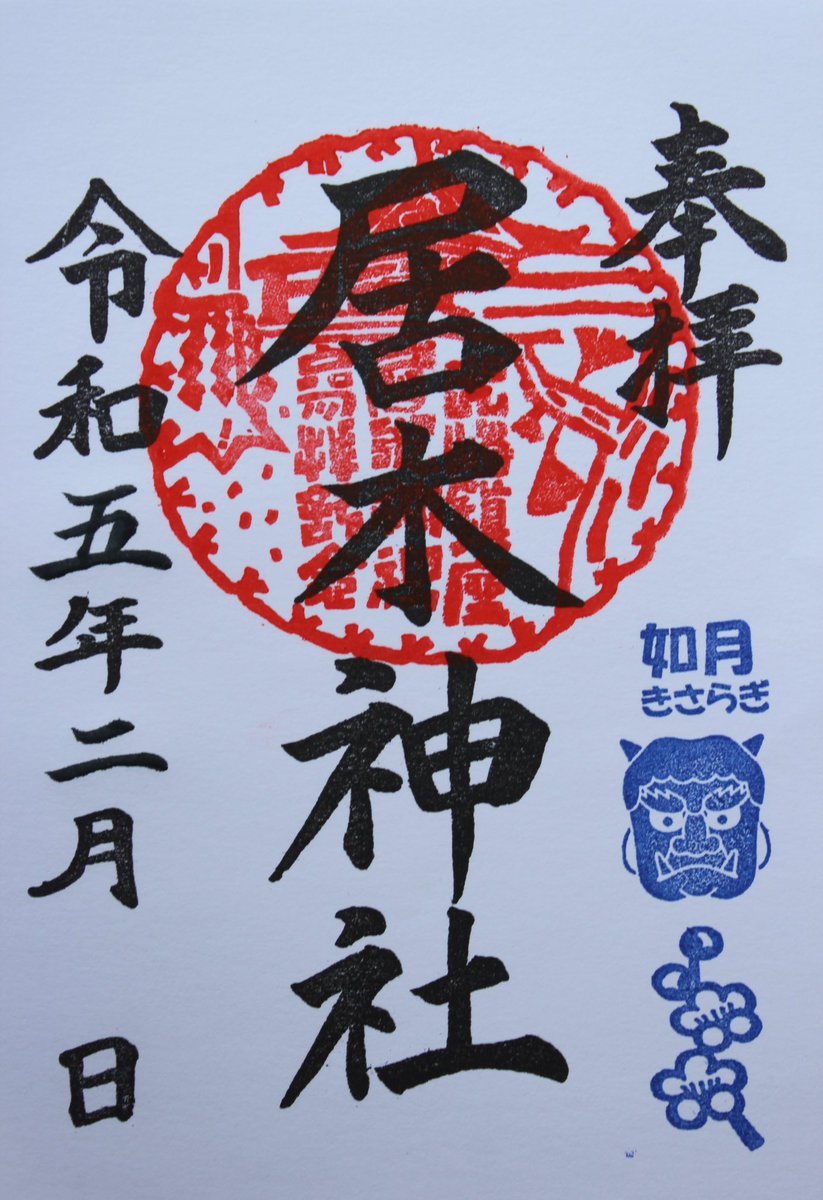 奉拝
如月
きさらぎ
居木神社
令和五年二月 日